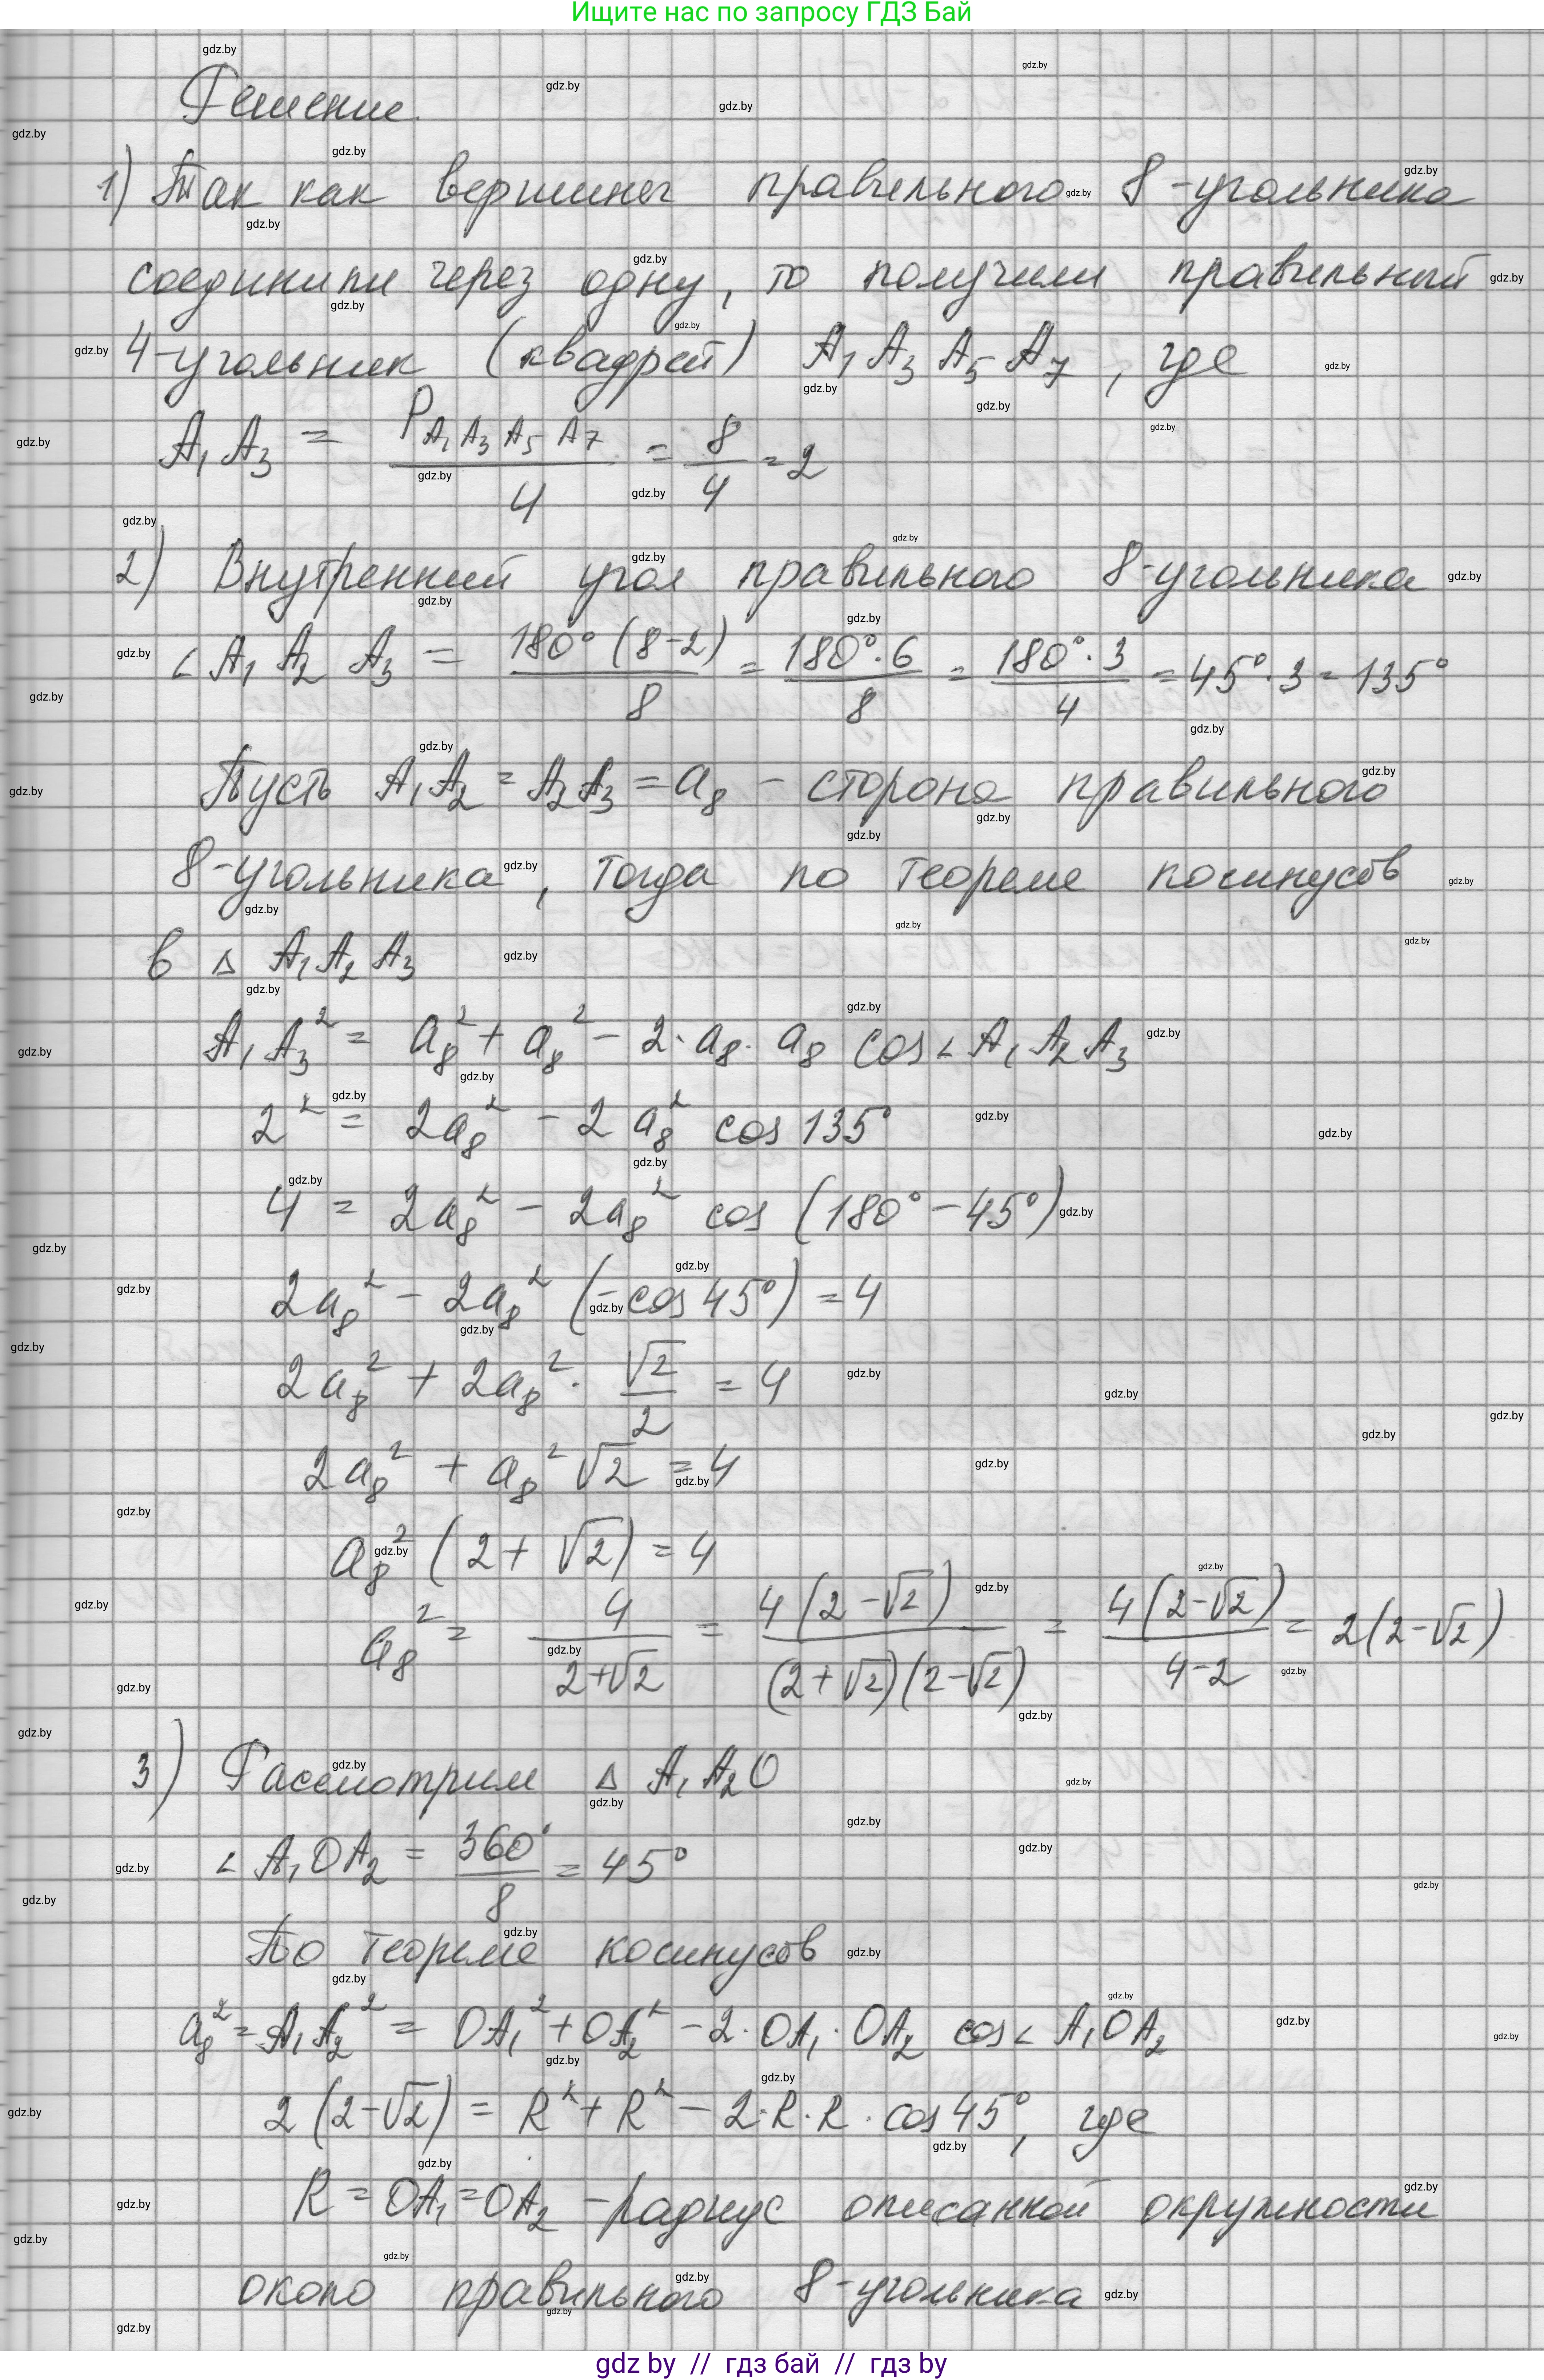 Ищите нас по запросу ГДЗ Бай
Решение.
1) Так как вершины правильного 8-угольника
соединили через одну, то получили правильный
4-угольник (квадрат) A₁A₃A₅A₇, где
A₁A₃ = P_{A₁A₃A₅A₇}/4 = 8/4 = 2
2) Внутренний угол правильного 8-угольника
∠A₁A₂A₃ = 180°(8-2)/8 = 180°·6/8 = 180°·3/4 = 45°·3 = 135°
Пусть A₁A₂ = A₂A₃ = a₈ - сторона правильного
8-угольника, тогда по теореме косинусов
в △ A₁A₂A₃
A₁A₃² = a₈² + a₈² - 2·a₈·a₈ cos∠A₁A₂A₃
2² = 2a₈² - 2a₈² cos 135°
4 = 2a₈² - 2a₈² cos (180° - 45°)
2a₈² - 2a₈² (-cos 45°) = 4
2a₈² + 2a₈² · √2/2 = 4
2a₈² + a₈²√2 = 4
a₈² (2 + √2) = 4
a₈² = 4/(2+√2) = 4(2-√2)/((2+√2)(2-√2)) = 4(2-√2)/(4-2) = 2(2-√2)
3) Рассмотрим △ A₁A₂O
∠A₁OA₂ = 360°/8 = 45°
По теореме косинусов
a₈² = A₁A₂² = OA₁² + OA₂² - 2·OA₁·OA₂ cos∠A₁OA₂
2(2-√2) = R² + R² - 2·R·R·cos 45°, где
R = OA₁ = OA₂ - радиус описанной окружности
около правильного 8-угольника
gdz by // гдз бай // гдз by